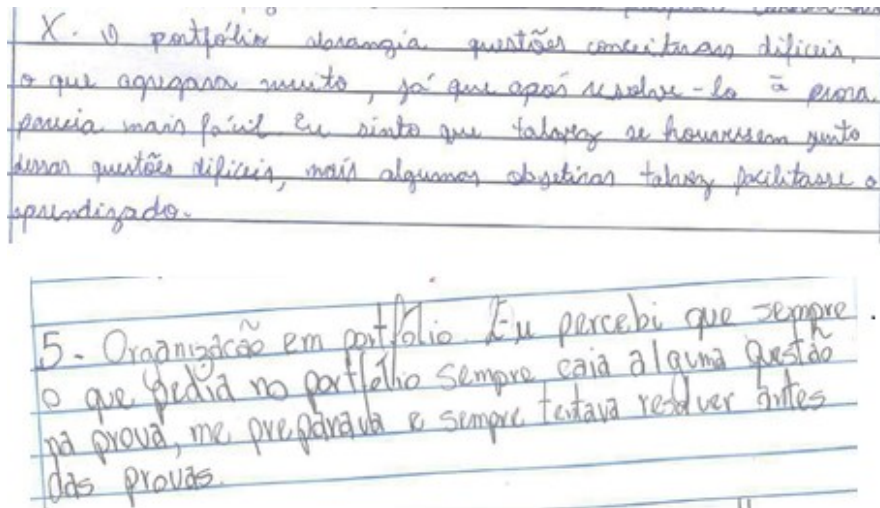 X. O portfólio abrangia questões conceituas difíceis,
o que agregava muito, já que após resolve-lo a prova
parecia mais fácil. Eu sinto que talvez se houvessem junto
dessas questões difíceis, mais algumas objetivas talvez facilitasse o
aprendizado.
5- Organização em portfólio. Eu percebi que sempre
o que pedia no portfólio sempre caia alguma questão
na prova, me preparava e sempre tentava resolver antes
das provas.